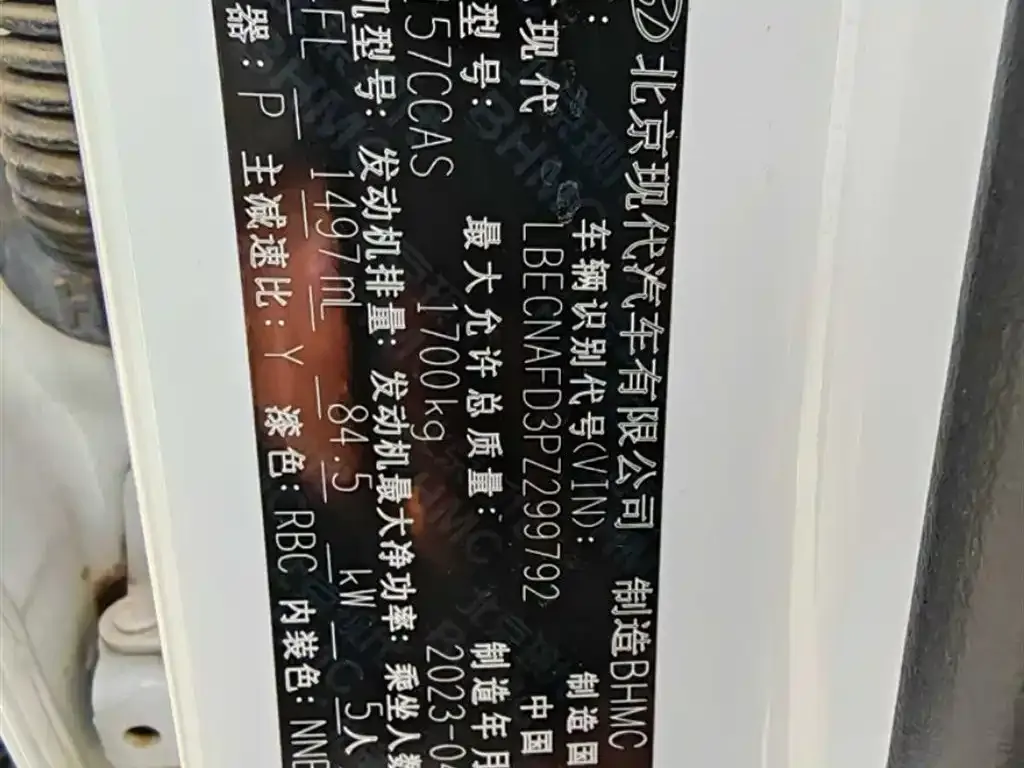 北京现代汽车有限公司 制造BHMC
车辆识别代号(VIN): 制造国
现代 LBECNAFD3PZ299792 中国
型号: 最大允许总质量: 制造年月
57CCAS 1700kg 2023-04
机型号: 发动机排量: 发动机最大净功率: 乘坐人数
FL 1497ml 84.5 kW 5人
器: P 主减速比: Y 漆色: RBC 内装色: NNB